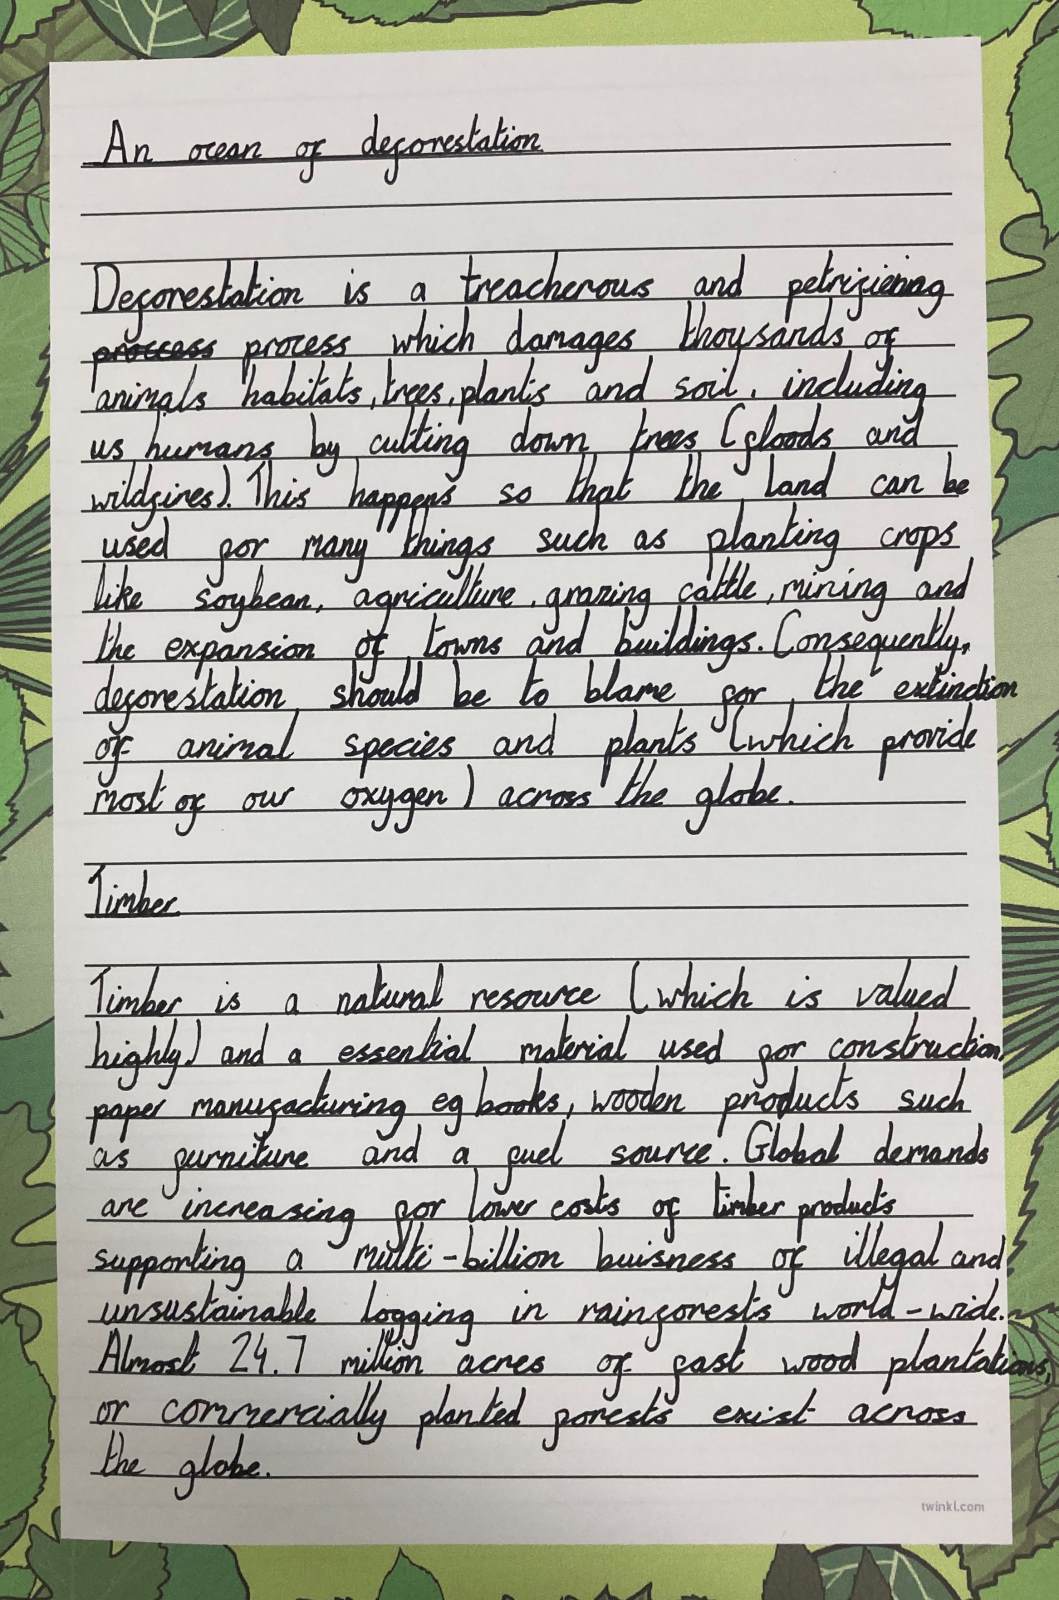 An ocean of deforestation
Deforestation is a treacherous and petrifiening
proccess process which damages thousands of
animals habitats, trees, plants and soil, including
us humans by cutting down trees (floods and
wildfires). This happens so that the land can be
used for many things such as planting crops
like soybean, agriculture, grazing cattle, mining and
the expansion of towns and buildings. Consequently,
deforestation should be to blame for the extinction
of animal species and plants (which provide
most of our oxygen) across the globe.
Timber
Timber is a natural resource (which is valued
highly) and a essential material used for construction,
paper manufacturing eg books, wooden products such
as furniture and a fuel source. Global demands
are increasing for lower costs of timber products
supporting a multi-billion buisness of illegal and
unsustainable logging in rainforests world-wide.
Almost 24.7 million acres of fast wood plantations,
or commercially planted forests exist across
the globe.
twinkl.com